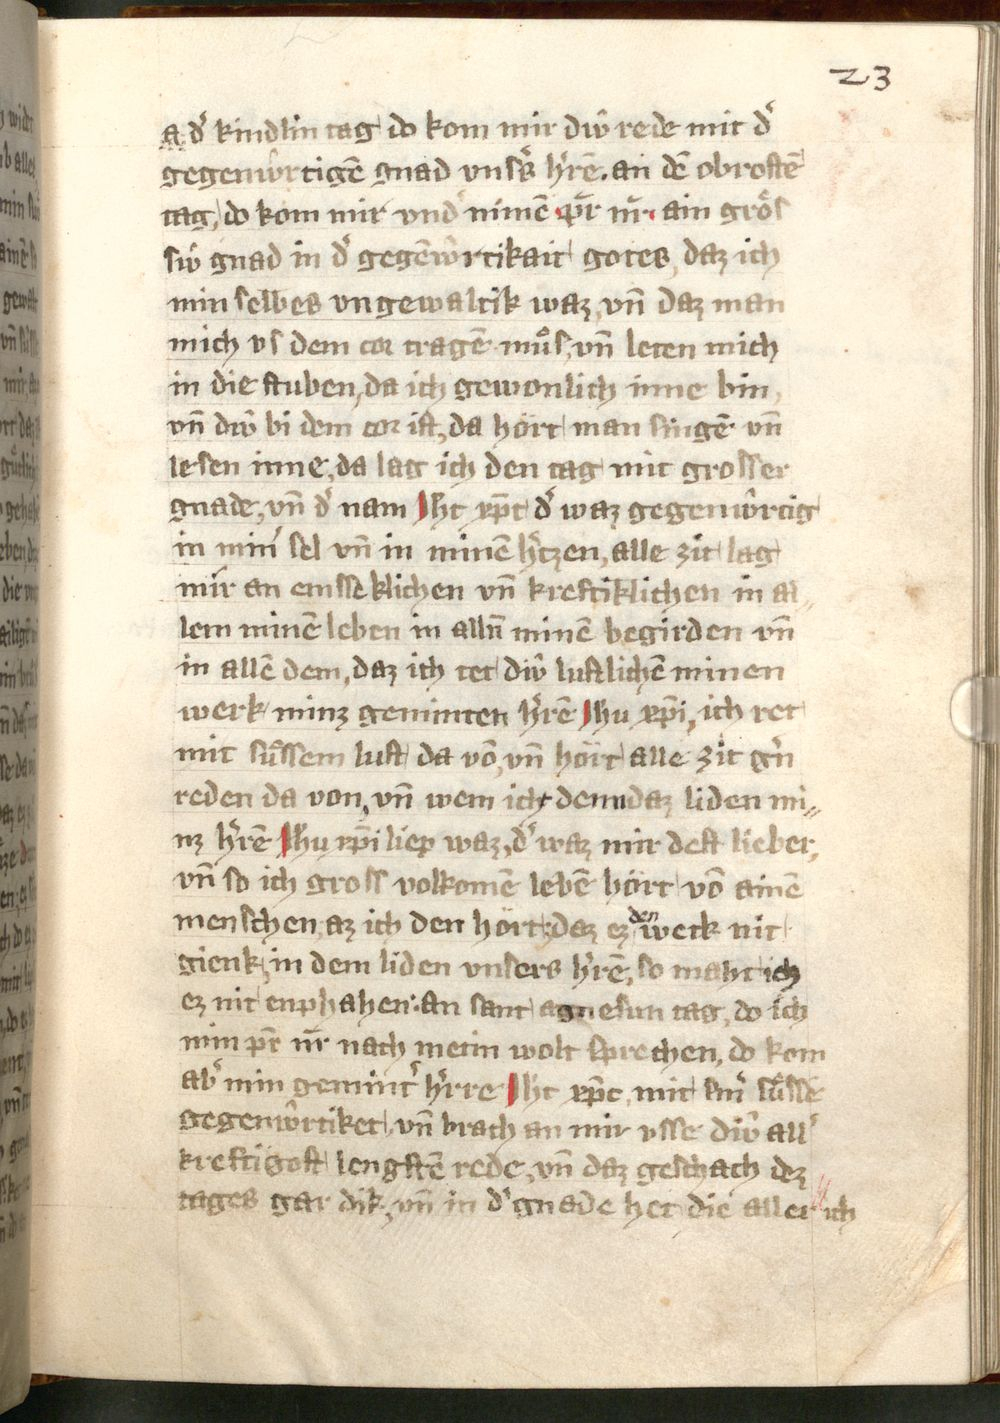 23
a dˀ kindlin tag do kom mir dıẘ rede mit dˀ
gegenẘrtigē gnad vnsˀs hˀrē. an dē obrostē
tag, do kom mir vndˀ minē pr̄ nr̄. ain grȯs
siẘ gnad in dˀ gegēẘrtikait gotes, daz ich
min selbes vngewaltik waz, vn̄ daz man
mich vs dem cor tragē můs, vn̄ leten mich
in die stuben, da ich gewonlich inne bin,
vn̄ diẘ bi dem cor ist, da hört man singē vn̄
lesen inne, da lag ich den tag mit grosser
gnade, vn̄ dˀ nam Jhc xp̄c dˀ waz gegenẘrtig
in minˀ sel vn̄ in minē hˀtzen, alle zit lag
mir an emsseklichen vn̄ kreftiklichen in al„
lem minē leben in alln̄ minē begirden vn̄
in allē dem, daz ich tet diẘ lustlichē minen
werk minz geminten hˀrē Jhu xp̄i, ich ret
mit sůssem lust da vō, vn̄ hört alle zit gˀn
reden da von, vn̄ wem ich denn daz liden mi„
nz hˀrē Jhu xp̄i liep waz, dˀ waz mir dest lieber,
vn̄ so ich gross volkomē lebē hört vō ainē
menschen, az ich den hört, daz ez den weck nit
gienk, in dem liden vnsers hˀrē, so maht ich
ez nit enphahen. an sant agnesun tag, do ich
min pr̄ nr̄ nach metin wolt sprechen, do kom
abˀ min gemintˀ hˀrre Jhc xp̄c, mit sinˀ sůsse
gegenẘrtiket, vn̄ brach an mir vsse diẘ allˀ
kreftigost lengstē rede, vn̄ daz geschach dez
tages gar dik, vn̄ in dˀ gnade het die aller ich